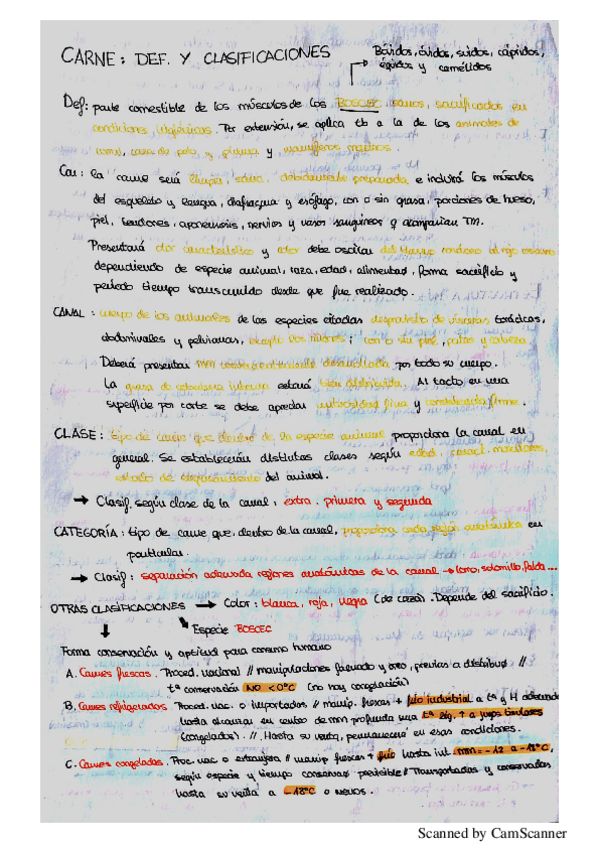 CARNE: DEF. Y CLASIFICACIONES
Bóvidos, óvidos, suidos, cápridos,
équidos y camélidos
Def: parte comestible de los músculos de los BOSCEC sanos, sacrificados en
condiciones higiénicas. Por extensión, se aplica tb a la de los animales de
corral, caza de pelo y pluma y mamíferos marinos.
Car: la carne será limpia, sana, debidamente preparada e incluirá los músculos
del esqueleto y lengua, diafragma y esófago, con o sin grasa, porciones de hueso,
piel, tendones, aponeurosis, nervios y vasos sanguíneos q acompañan TM.
Presentará olor característico y color debe oscilar del blanco rosáceo al rojo oscuro
dependiendo de especie animal, raza, edad, alimentad, forma sacrificio y
período tiempo transcurrido desde que fue realizado.
CANAL: cuerpo de los animales de las especies citadas desprovisto de vísceras torácicas,
abdominales y pelvianas, excepto los riñones; con o sin piel, patas y cabeza.
Deberá presentar mm consecuentemente desarrollada por todo su cuerpo.
La grasa de cobertura interna estará bien distribuida. Al tacto en una
superficie por corte se debe apreciar untuosidad fina y consistencia firme.
CLASE: tipo de carne que dentro de la especie animal proporciona la canal en
general. Se establecerán distintas clases según edad, caract. musculares,
estado de desprendimiento del animal.
→ Clasif. según clase de la canal: extra, primera y segunda
CATEGORÍA: tipo de carne que, dentro de la canal, proporciona cada región anatómica en
particular.
→ Clasif: separación adecuada regiones anatómicas de la canal → lomo, solomillo, falda...
OTRAS CLASIFICACIONES → Color: blanca, roja, negra (de caza). Depende del sacrificio.
Especie BOSCEC
Forma conservación y aptitud para consumo humano
A. Carnes frescas. Proced. nacional // manipulaciones faenado y oreo, previas a distribuc //
tª conservación NO < 0ºC (no hay congelación)
B. Carnes refrigeradas. Proced. nac. o importados // manip. frescas + frío industrial a tª y H adecuada
hasta alcanzar en centro de mm profunda una tª
(congelados). // Hasta su venta, permanecerá en esas condiciones.
C. Carnes congeladas. Proc. nac o extranjera // manip frescas + frío hasta int mm = -12 a -18ºC,
según especie y tiempo conservac previsible // Transportados y conservados
hasta su venta a -18ºC o menos.
Scanned by CamScanner